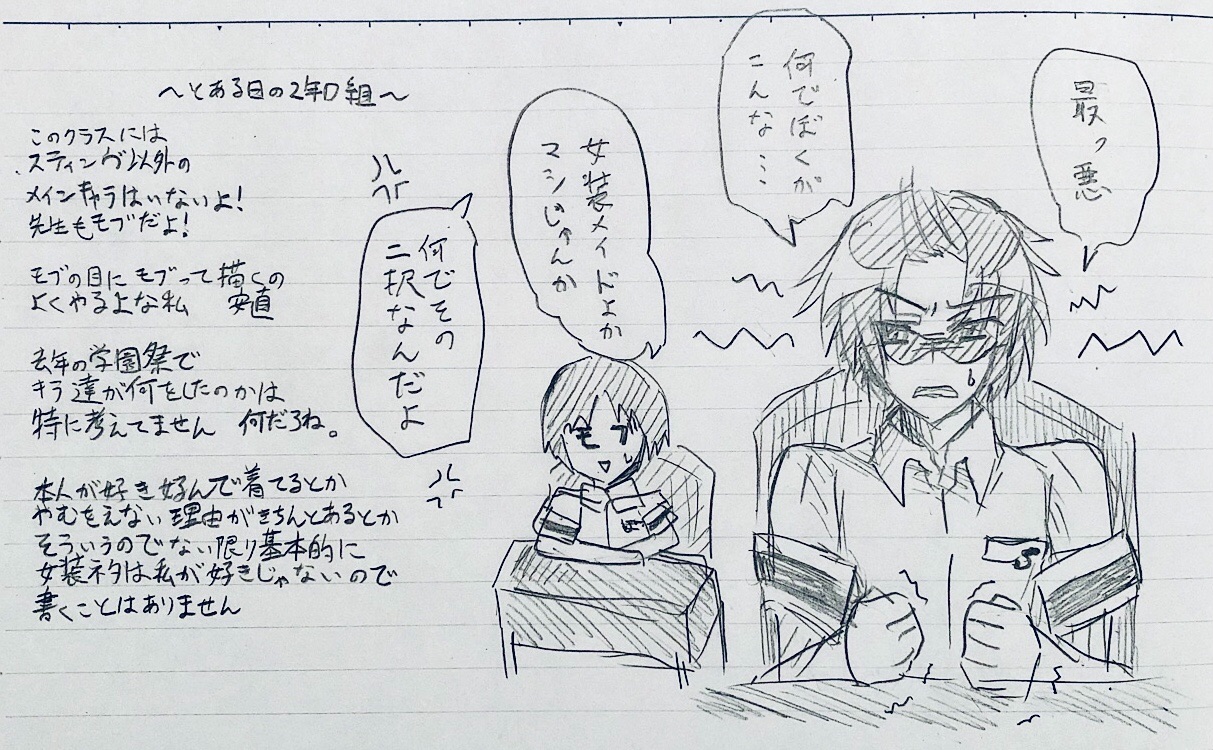 ～とある日の2年D組～
このクラスには
スティング以外の
メインキャラはいないよ!
先生もモブだよ!
モブの目にモブって描くの
よくやるよな私 安直
去年の学園祭で
キラ達が何をしたのかは
特に考えてません 何だろね。
本人が好き好んで着てるとか
やむをえない理由がきちんとあるとか
そういうのでない限り基本的に
女装ネタは私が好きじゃないので
書くことはありません
最ッ悪
何でぼくが
こんな…
女装メイドよか
マシじゃんか
何でその
二択なんだよ
モブ